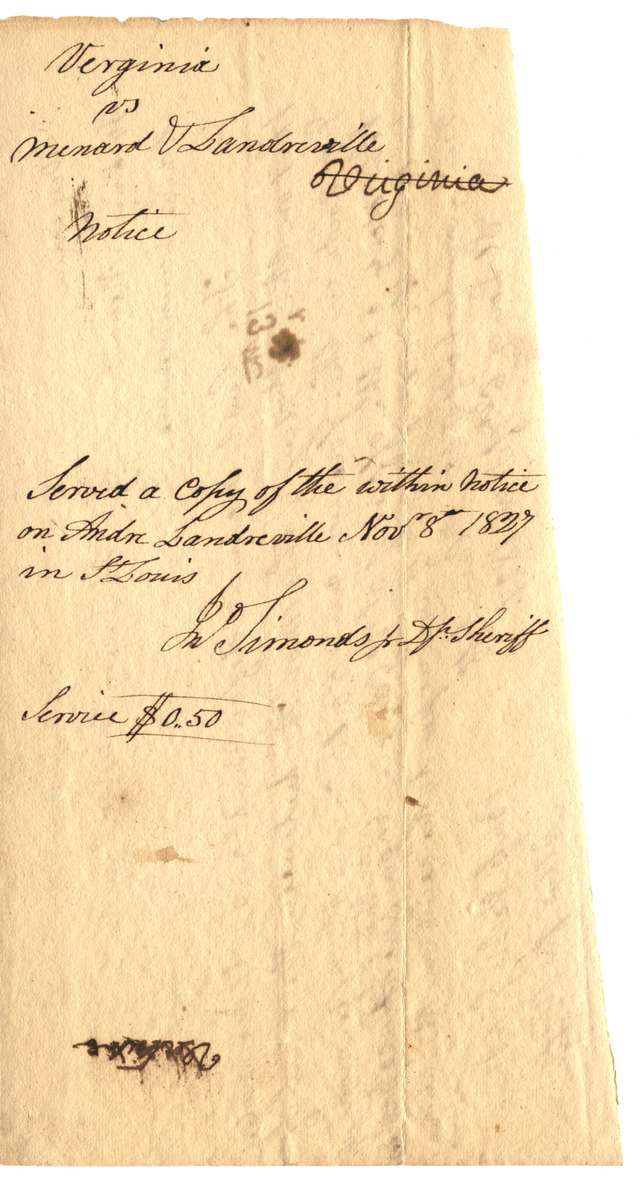 Verginia
vs
Menard & Landreville
Virginia
Notice
Served a Copy of the within Notice
on Andre Landreville Nov 8th 1827
in St Louis
Jno Simonds jr Dp. Sheriff
Service $0..50